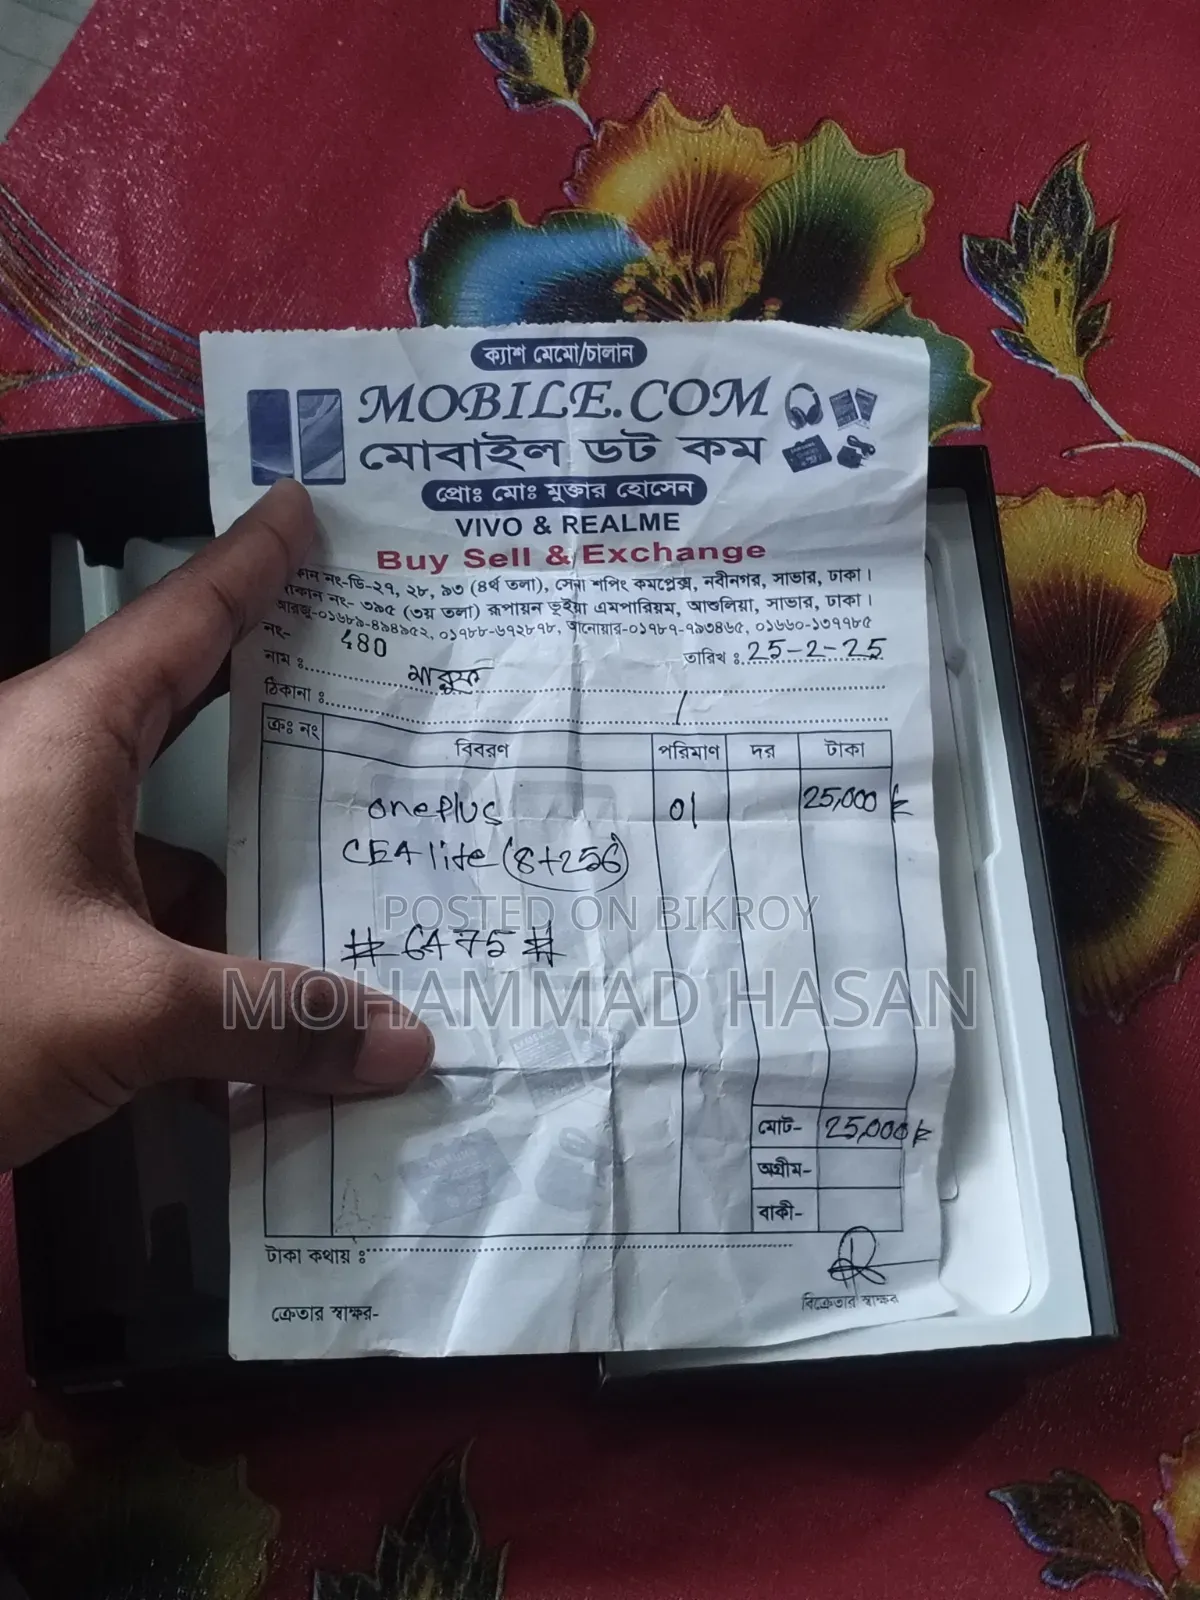 ক্যাশ মেমো/চালান
MOBILE.COM
মোবাইল ডট কম
প্রোঃ মোঃ মুক্তার হোসেন
VIVO & REALME
Buy Sell & Exchange
কান নং-ডি-২৭, ২৮, ৯৩ (৪র্থ তলা), সেনা শপিং কমপ্লেক্স, নবীনগর, সাভার, ঢাকা।
দোকান নং- ৩৯৫ (৩য় তলা) রূপায়ন ভূইয়া এমপারিয়ম, আশুলিয়া, সাভার, ঢাকা।
আরজু-০১৬৮৯-৪৯৪৯৫২, ০১৭৮৮-৬৭২৮৭৮, আনোয়ার-০১৭৮৭-৭৯৩৪৬৫, ০১৬৬০-১৩৭৭৮৫
নং- 480 তারিখ : 25-2-25
নাম : মারুফ
ঠিকানা :
ক্রঃ নং বিবরণ পরিমাণ দর টাকা
oneplus 01 25,000 k
CE4 lite (8+256)
POSTED ON BIKROY
# 6475 #
MOHAMMAD HASAN
SAMSUNG
মোট- 25,000 k
অগ্রীম-
বাকী-
টাকা কথায় :
ক্রেতার স্বাক্ষর- বিক্রেতার স্বাক্ষর